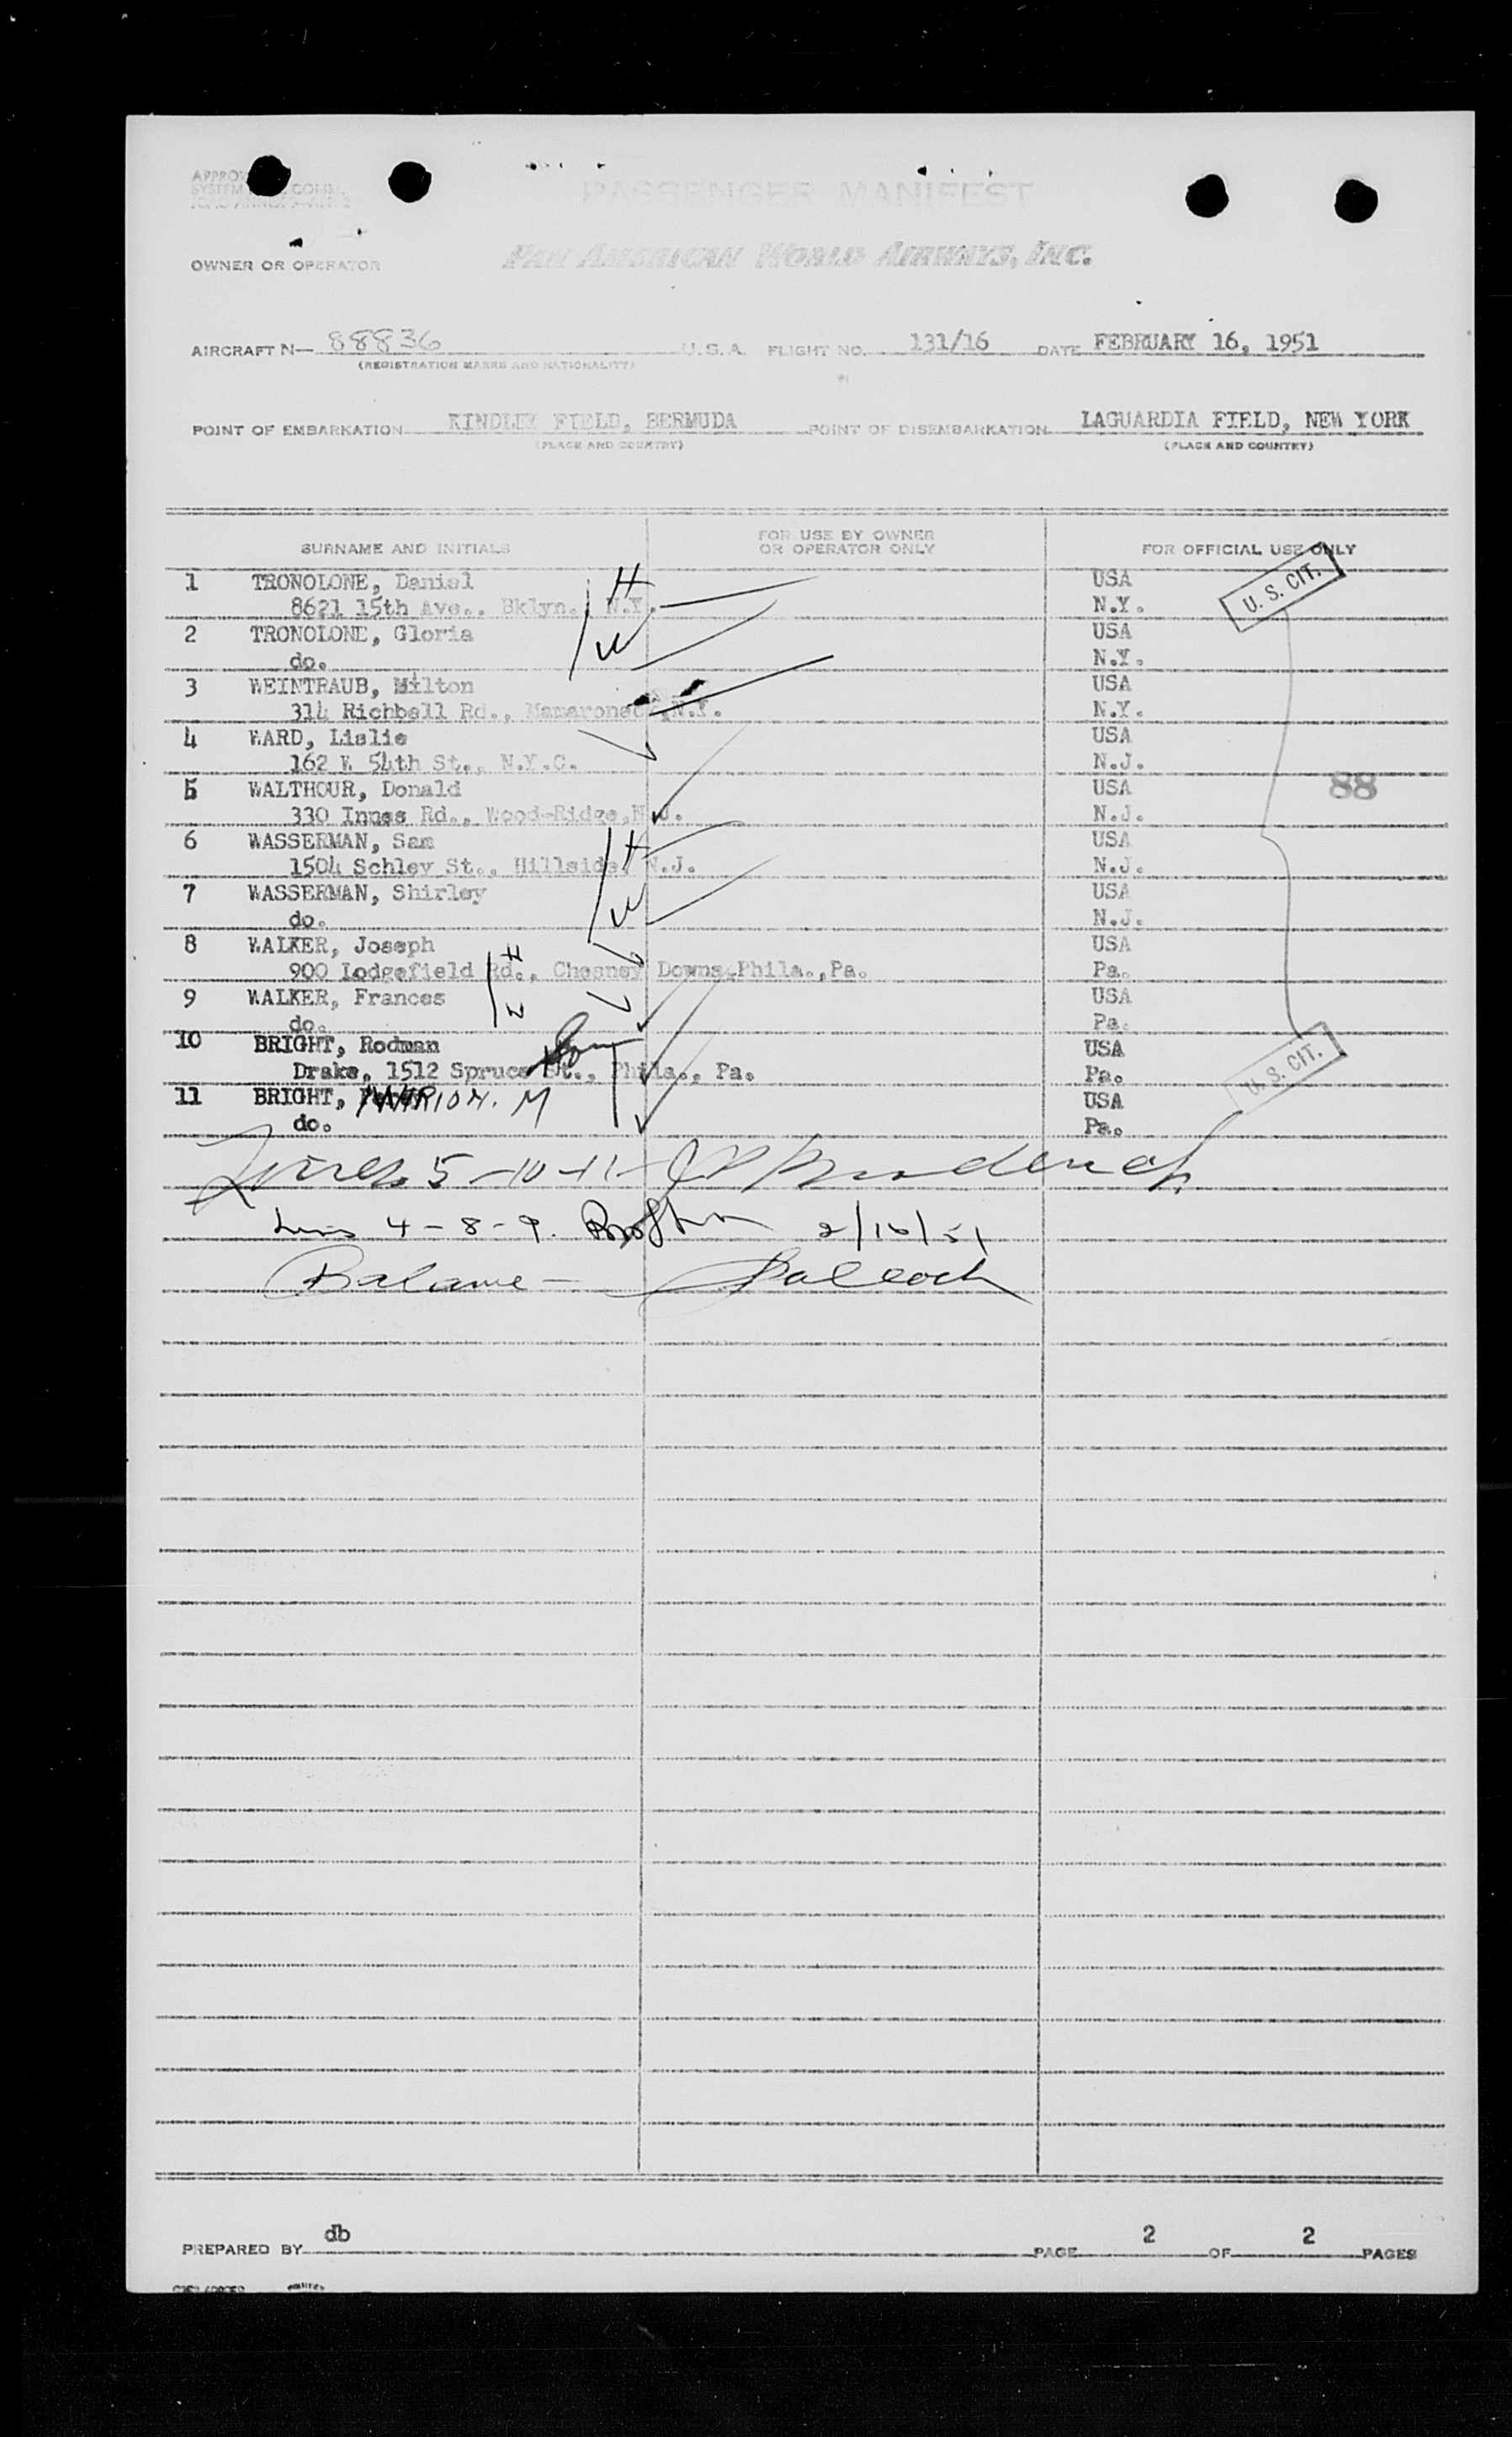 PASSENGER MANIFEST
OWNER OR OPERATOR PAN AMERICAN WORLD AIRWAYS, INC.
AIRCRAFT N— 88836 U.S.A. FLIGHT NO. 131/16 DATE FEBRUARY 16, 1951
(REGISTRATION MARKS AND NATIONALITY)
POINT OF EMBARKATION KINDLEY FIELD, BERMUDA POINT OF DISEMBARKATION LAGUARDIA FIELD, NEW YORK
(PLACE AND COUNTRY) (PLACE AND COUNTRY)
SURNAME AND INITIALS FOR USE BY OWNER OR OPERATOR ONLY FOR OFFICIAL USE ONLY
1 TRONOLONE, Daniel USA U. S. CIT.
8621 15th Ave., Bklyn., N.Y. N.Y.
2 TRONOLONE, Gloria USA
do. N.Y.
3 WEINTRAUB, Milton USA
314 Richbell Rd., Mamaroneck, N.Y. N.Y.
4 WARD, Lislie USA
162 W 54th St., N.Y.C. N.J.
5 WALTHOUR, Donald USA 88
330 Innes Rd., Wood-Ridge, N.J. N.J.
6 WASSERMAN, Sam USA
1504 Schley St., Hillside, N.J. N.J.
7 WASSERMAN, Shirley USA
do. N.J.
8 WALKER, Joseph USA
900 Lodgefield Rd., Chesney Downs, Phila., Pa. Pa.
9 WALKER, Frances USA
do. Pa.
10 BRIGHT, Rodman USA U. S. CIT.
Drake, 1512 Spruce St., Phila., Pa. Pa.
11 BRIGHT, MARION. M USA
do. Pa.
Lines 5-10-11-
Lines 4-8-9. 2/16/51
Balance — Balcoch
PREPARED BY db PAGE 2 OF 2 PAGES